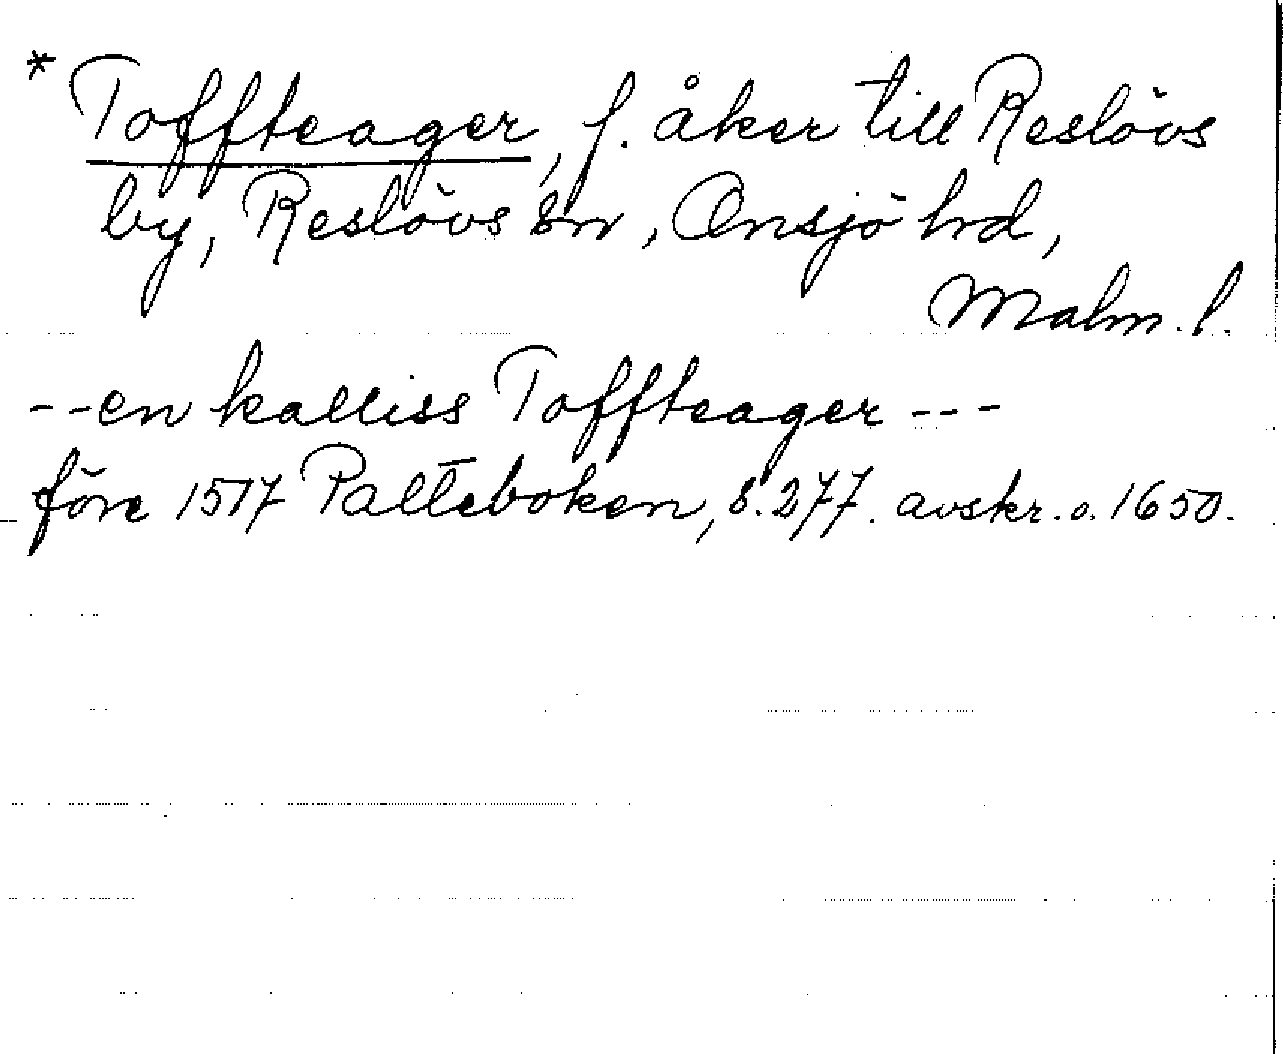 * Toffteager, f. åker till Reslövs
by, Reslövs sn, Onsjö hrd,
Malm. l.
--en kalliss Toffteager ---
före 1517 Palteboken, s. 277. avskr. o. 1650.